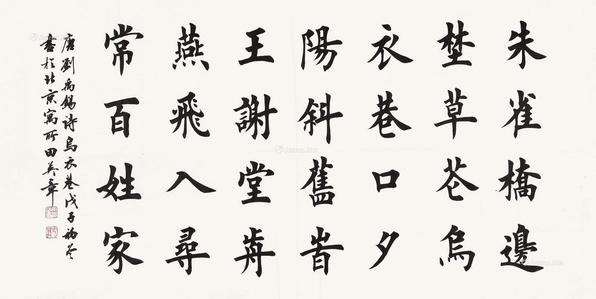 朱雀橋邊
埜草芲烏
衣巷口夕
陽斜舊旹
王謝堂歬
燕飛入尋
常百姓家
唐劉禹錫詩烏衣巷戊子初冬
書於北京寓所田英章